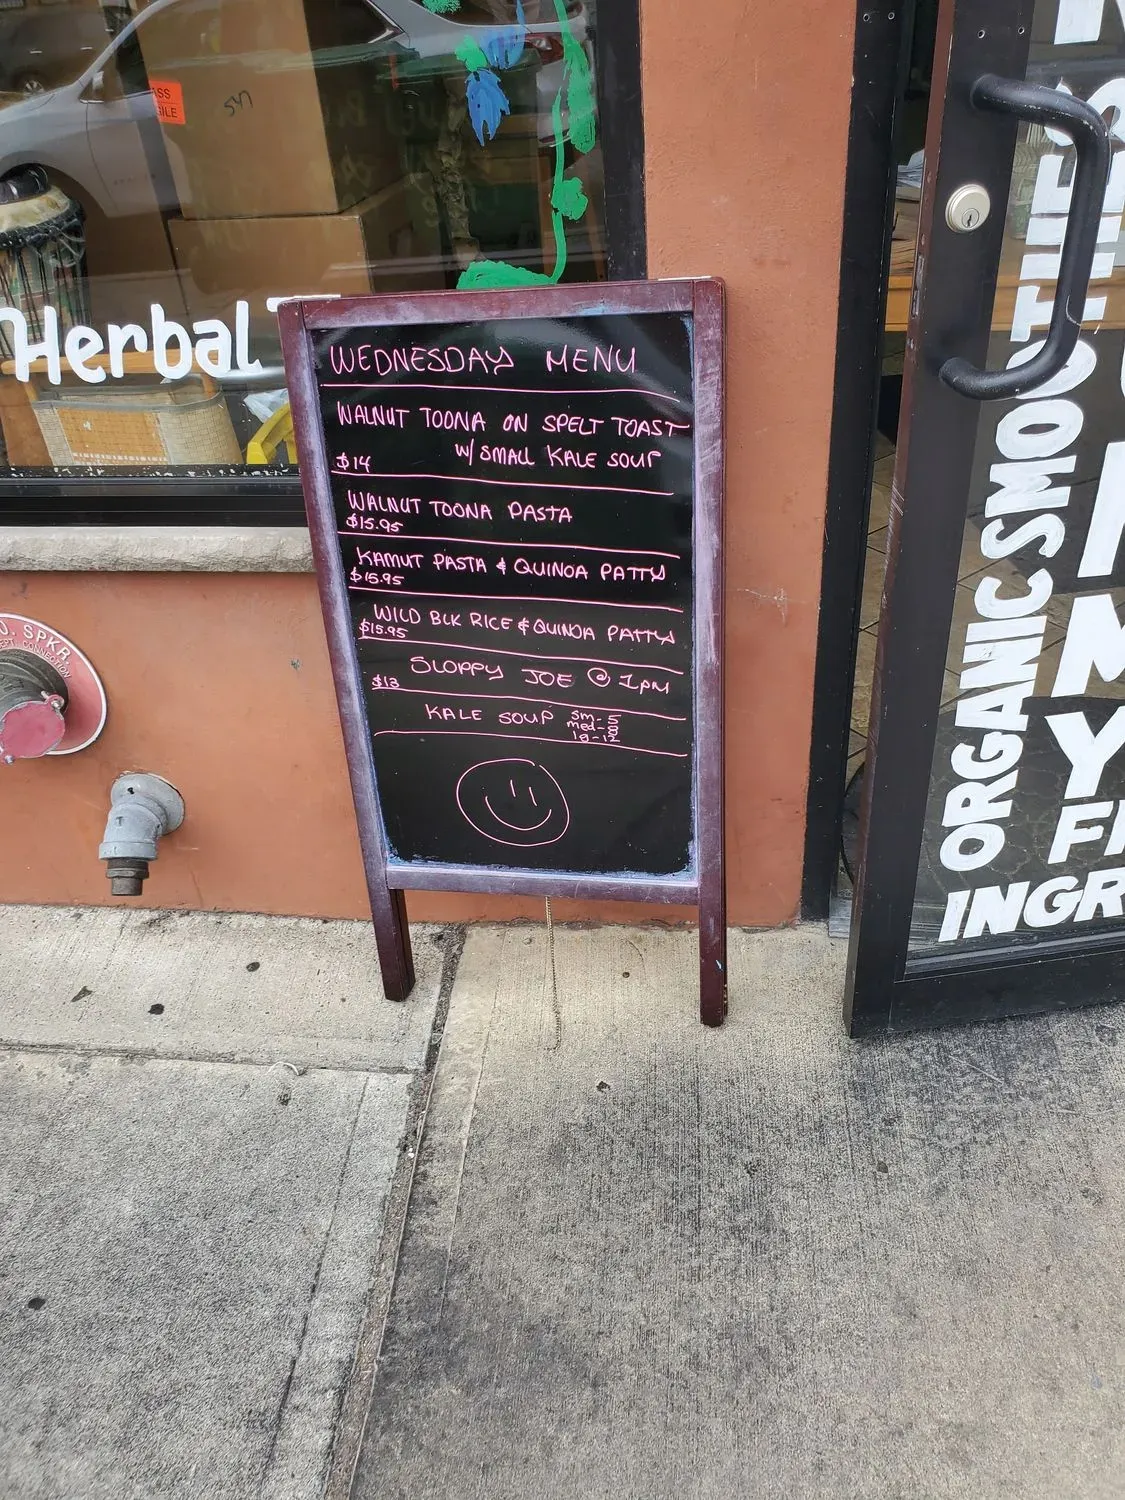 547
Herbal
WEDNESDAY MENU
WALNUT TOONA ON SPELT TOAST
W/ SMALL KALE SOUP
$14
WALNUT TOONA PASTA
$15.95
KAMUT PASTA & QUINOA PATTY
$15.95
WILD BLK RICE & QUINOA PATTY
$15.95
SLOPPY JOE @ 1PM
$13
KALE SOUP sm-5
med-8
lg-12
SPKR.
CONNECTION
ORGANIC SMOOTHIES
M
Y
INGR